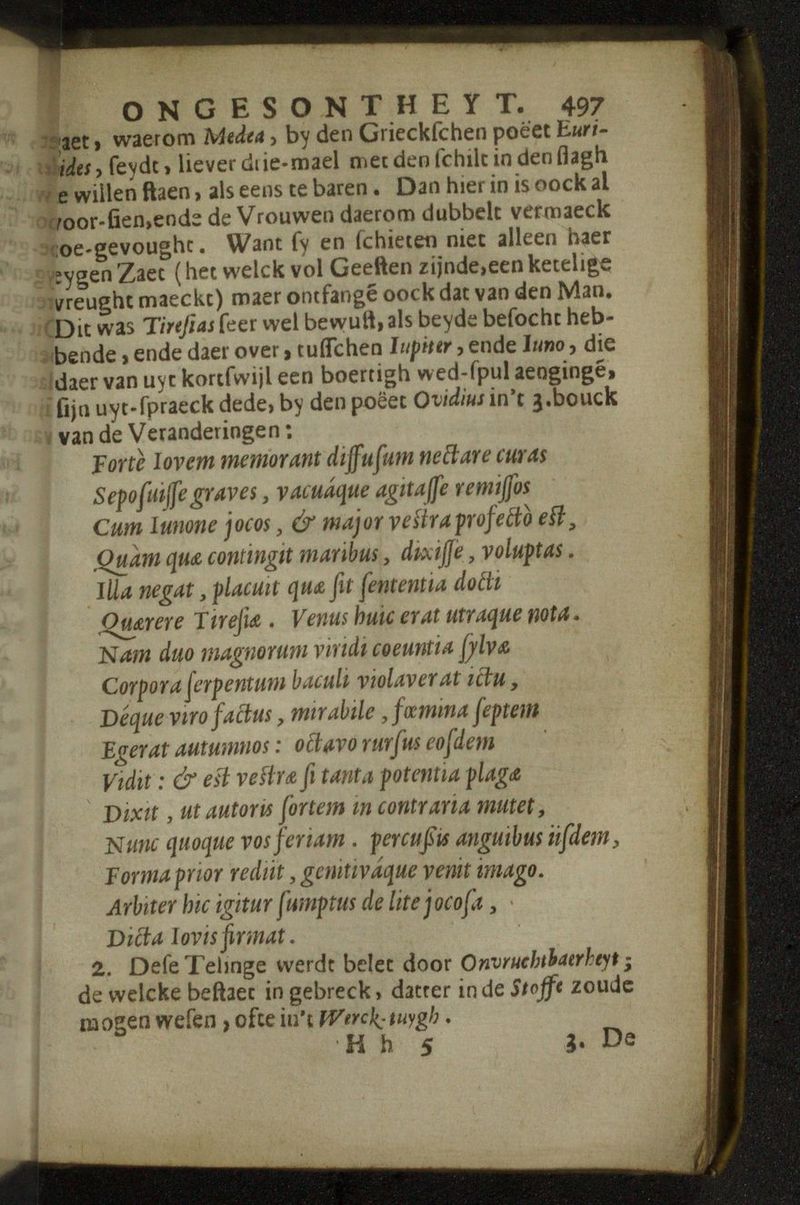 ONGESONTHEYT. 497
waerom Medea, by den Grieckſchen poëet Euri-
ſeydt, liever drie-mael met den ſchilt in den ſlagh
willen ſtaen, als eens te baren. Dan hier in is oock al
voor-ſien, ende de Vrouwen daerom dubbelt vermaeck
toe-gevought. Want ſy en ſchieten niet alleen haer
eygen Zaet (het welck vol Geeſten zijnde, een ketelige
vreught maeckt) maer ontfangē oock dat van den Man.
Dit was Tireſias ſeer wel bewuſt, als beyde beſocht heb-
bende, ende daer over, tuſſchen Iupiter, ende Iuno, die
daer van uyt kortſwijl een boertigh wed-ſpul aengingē,
ſijn uyt-ſpraeck dede, by den poëet Ovidius in't 3.bouck
van de Veranderingen:
Fortè Iovem memorant diffuſum nectare curas
Sepoſuiſſe graves, vacuáque agitaſſe remiſſos
Cum Iunone jocos, & major veſtra profectò eſt,
Quàm quæ contingit maribus, dixiſſe, voluptas.
Illa negat, placuit quæ ſit ſententia docti
Quærere Tireſiæ. Venus huic erat utraque nota.
Nam duo magnorum viridi coeuntia ſylvæ
Corpora ſerpentum baculi violaverat ictu,
Déque viro factus, mirabile, fœmina ſeptem
Egerat autumnos: octavo rurſus eoſdem
Vidit: & eſt veſtræ ſi tanta potentia plagæ
Dixit, ut autoris ſortem in contraria mutet,
Nunc quoque vos feriam. percuſsis anguibus iiſdem,
Forma prior rediit, genitiváque venit imago.
Arbiter hic igitur ſumptus de lite jocoſa,
Dicta Iovis firmat.
2. Deſe Telinge werdt belet door Onvruchtbaerheyt;
de welcke beſtaet in gebreck, datter in de Stoffe zoude
mogen weſen, ofte in't Werck-tuygh.
H h 5 3. De